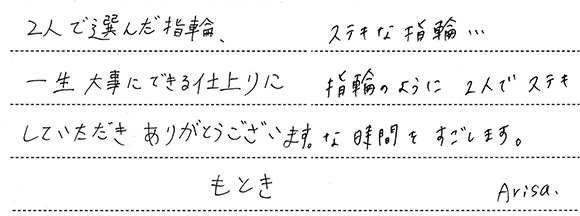 2人で選んだ指輪、
一生大事にできる仕上りに
していただきありがとうございます。
もとき
ステキな指輪…
指輪のように 2人でステキ
な時間をすごします。
Arisa.